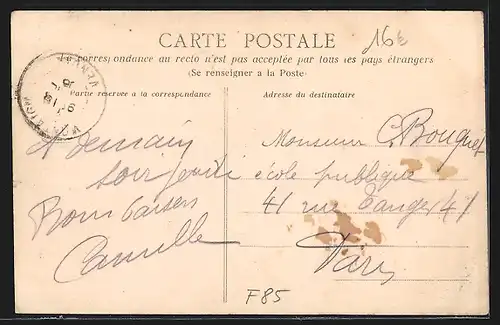 CARTE POSTALE
La correspondance au recto n'est pas acceptée par tous les pays étrangers
(Se renseigner a la Poste)
16€
Partie réservée a la correspondance
Adresse du destinataire
A demain
soir jeudi
Bons baisers
Camille
Monsieur C. Bouquet
école publique
41 rue Tanger 41
Paris
F85